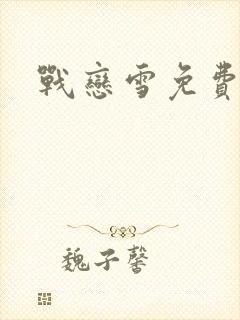 戰戀雪免費
魏子馨